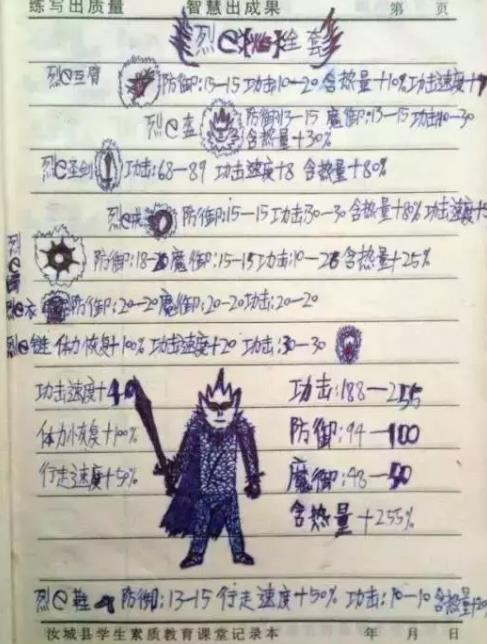 练写出质量 智慧出成果 第 页
烈@ 全套
烈@巨臂 防御:13-15 功击10-20 含热量+10% 功击速度+
烈@盔 防御13-15 魔御:13-15 功击10-30
含热量+30%
烈@圣剑 功击:68-89 功击速度+8 含热量+80%
烈@ 防御:15-15 功击30-30 含热量+8% 功击速度+5
烈@ 防御:18-20 魔御:15-15 功击:10-25 含热量+25%
烈@衣 防御:20-20 魔御:20-20 功击:20-20
烈@链 体力恢复+100% 功击速度+20 功击:30-30
功击速度+40 功击:188-255
体力恢复+100% 防御:94-100
行走速度+50% 魔御:48-50
含热量+255%
烈@鞋 防御:13-15 行走速度+50% 功击:10-10 含热量+20
汝城县学生素质教育课堂记录本 年 月 日